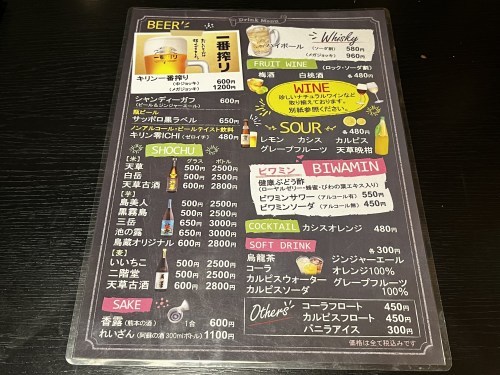 Drink Menu
BEER
一番搾り
キリン一番搾り
(中ジョッキ) 600円
(メガジョッキ) 1200円
シャンディーガフ 600円
(ビール&ジンジャーエール)
サッポロ黒ラベル 650円
ノンアルコール・ビールテイスト飲料
キリン零ICHI (ゼロイチ) 480円
SHOCHU
グラス ボトル
【米】
天草 500円 2500円
白岳 500円 2500円
天草古酒 600円 2800円
【芋】
島美人 500円 2500円
黒霧島 500円 2500円
三岳 600円 3000円
池の露 600円 3000円
鳥蔵オリジナル 600円 2800円
【麦】
いいちこ 500円 2500円
二階堂 500円 2500円
天草古酒 600円 2800円
SAKE
香露 (熊本の酒) 1合 600円
れいざん (阿蘇の酒 300mlボトル) 1100円
Whisky
ハイボール (ソーダ割) 580円
(メガジョッキ) 960円
FRUIT WINE (ロック・ソーダ割)
梅酒 白桃酒 各480円
WINE
珍しいナチュラルワインなど
取り揃えております。
別紙参照ください。
SOUR 各480円
レモン カシス カルピス
グレープフルーツ 天草晩柑
ビワミン BIWAMIN
健康ぶどう酢
(ローヤルゼリー・蜂蜜・びわの葉エキス入り)
ビワミンサワー (アルコール有) 550円
ビワミンソーダ (アルコール無) 450円
COCKTAIL カシスオレンジ 480円
SOFT DRINK 各300円
烏龍茶 ジンジャーエール
コーラ オレンジ100%
カルピスウォーター グレープフルーツ
カルピスソーダ 100%
Others
コーラフロート 450円
カルピスフロート 450円
バニラアイス 300円
価格は全て税込みです